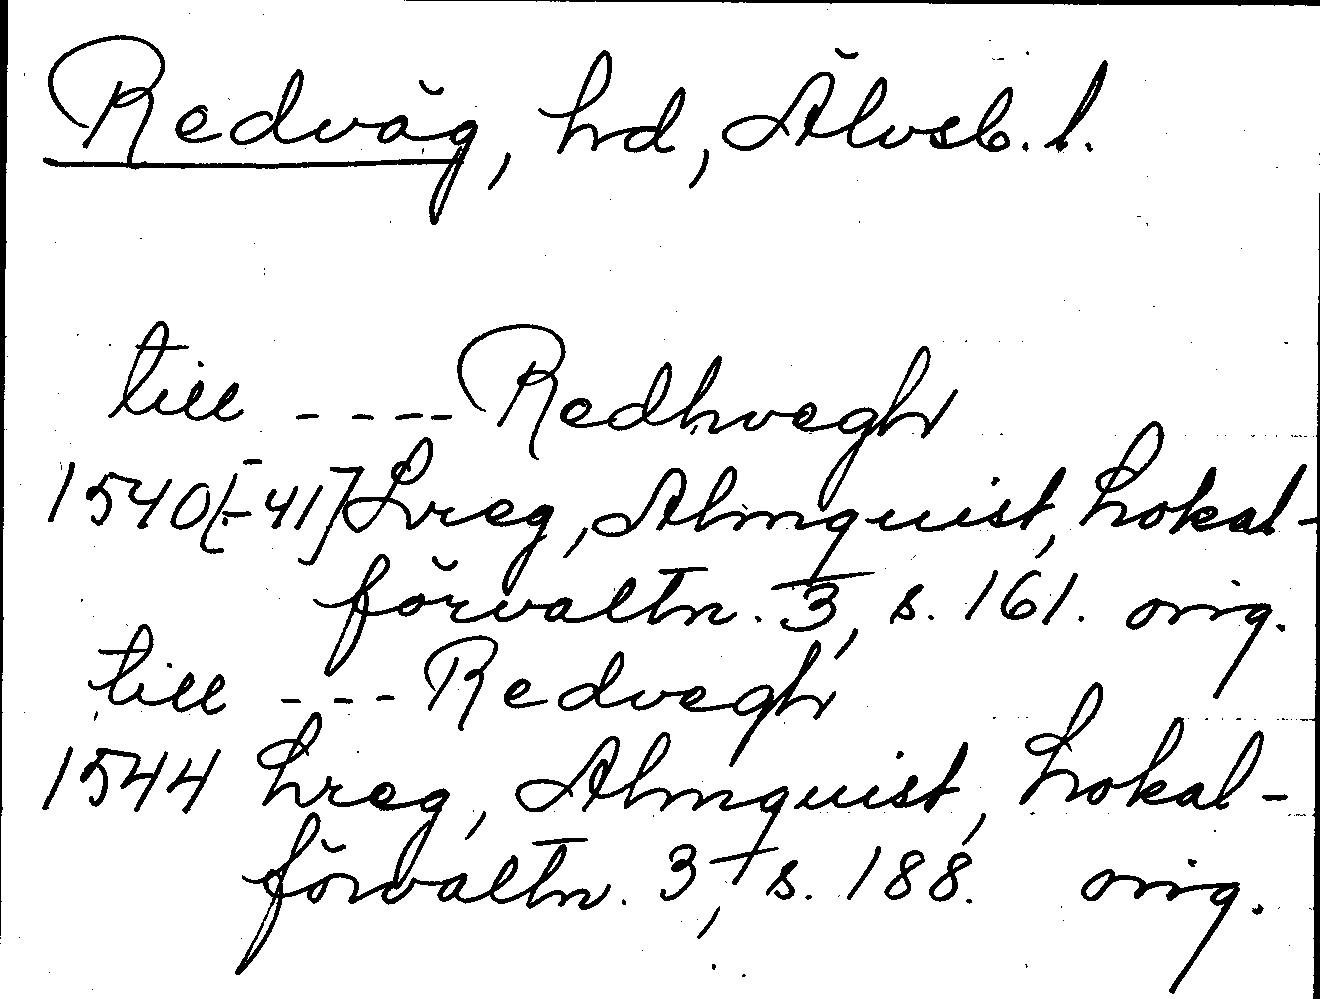 Redväg, hd, Älvsb. l.
till ---- Redhvegh
1540[-41] Lreg, Almquist, Lokal-
förvaltn. 3, s. 161. orig.
till --- Redvegh
1544 Lreg, Almquist, Lokal-
förvaltn. 3, s. 188. orig.